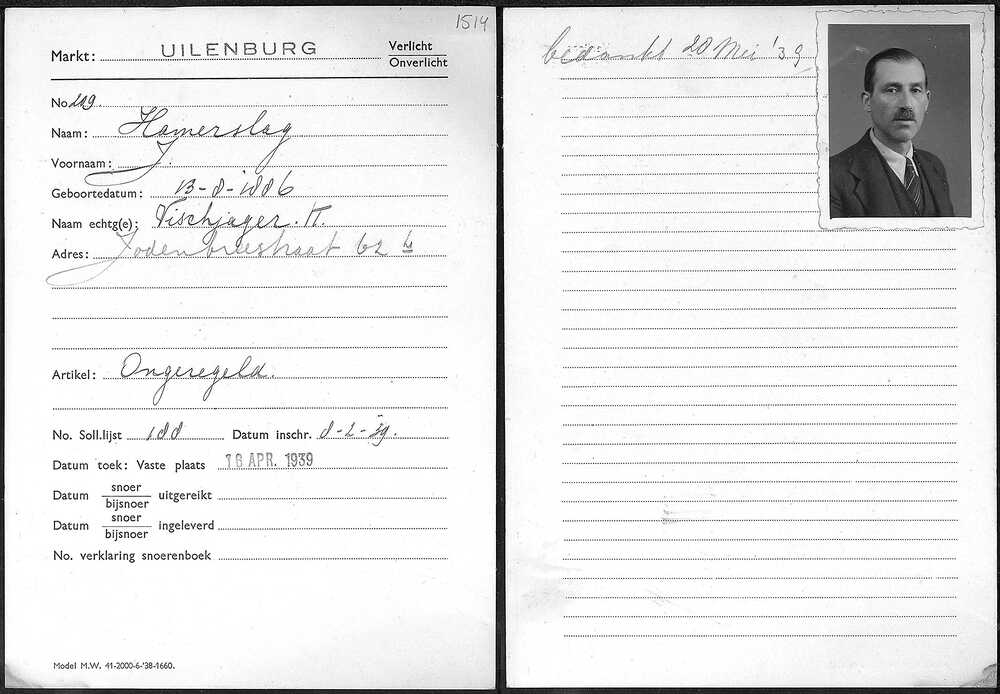 1514
Markt: UILENBURG Verlicht
Onverlicht
No 219.
Naam: Hamerslag
Voornaam: J.
Geboortedatum: 13-8-1886
Naam echtg(e): Vischjager. K.
Adres: Jodenbreestraat 62 h
Artikel: Ongeregeld.
No. Soll.lijst 188 Datum inschr. 8-2-39.
Datum toek: Vaste plaats 16 APR. 1939
Datum snoer
bijsnoer uitgereikt
Datum snoer
bijsnoer ingeleverd
No. verklaring snoerenboek
Model M.W. 41-2000-6-'38-1660.
bedankt 20 Mei '39